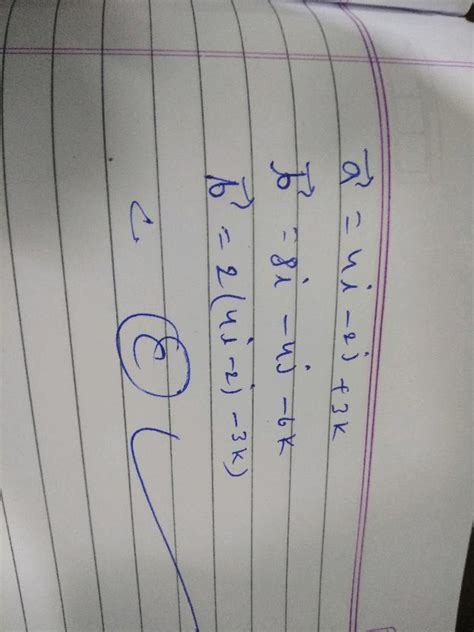 a⃗ = 4i - 2j + 3k
b⃗ = 8i - 4j - 6k
b⃗ = 2(4i - 2j - 3k)